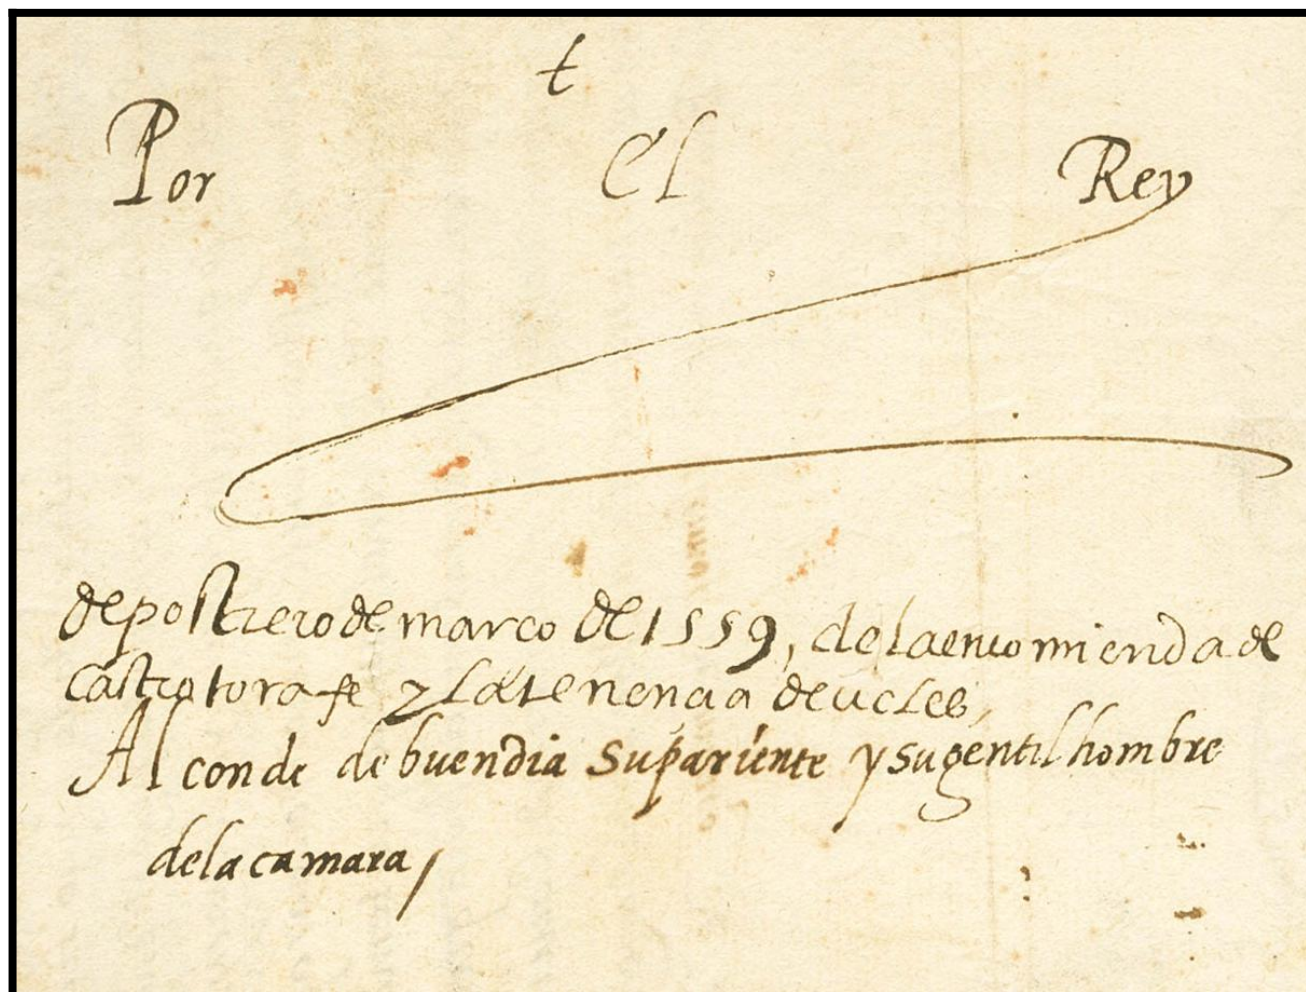 t
Por el Rey
de postrero de março de 1559, de la encomienda de
castrotorafe y la tenencia de ucles,
Al conde de buendia su pariente y su gentil hombre
de la camara,